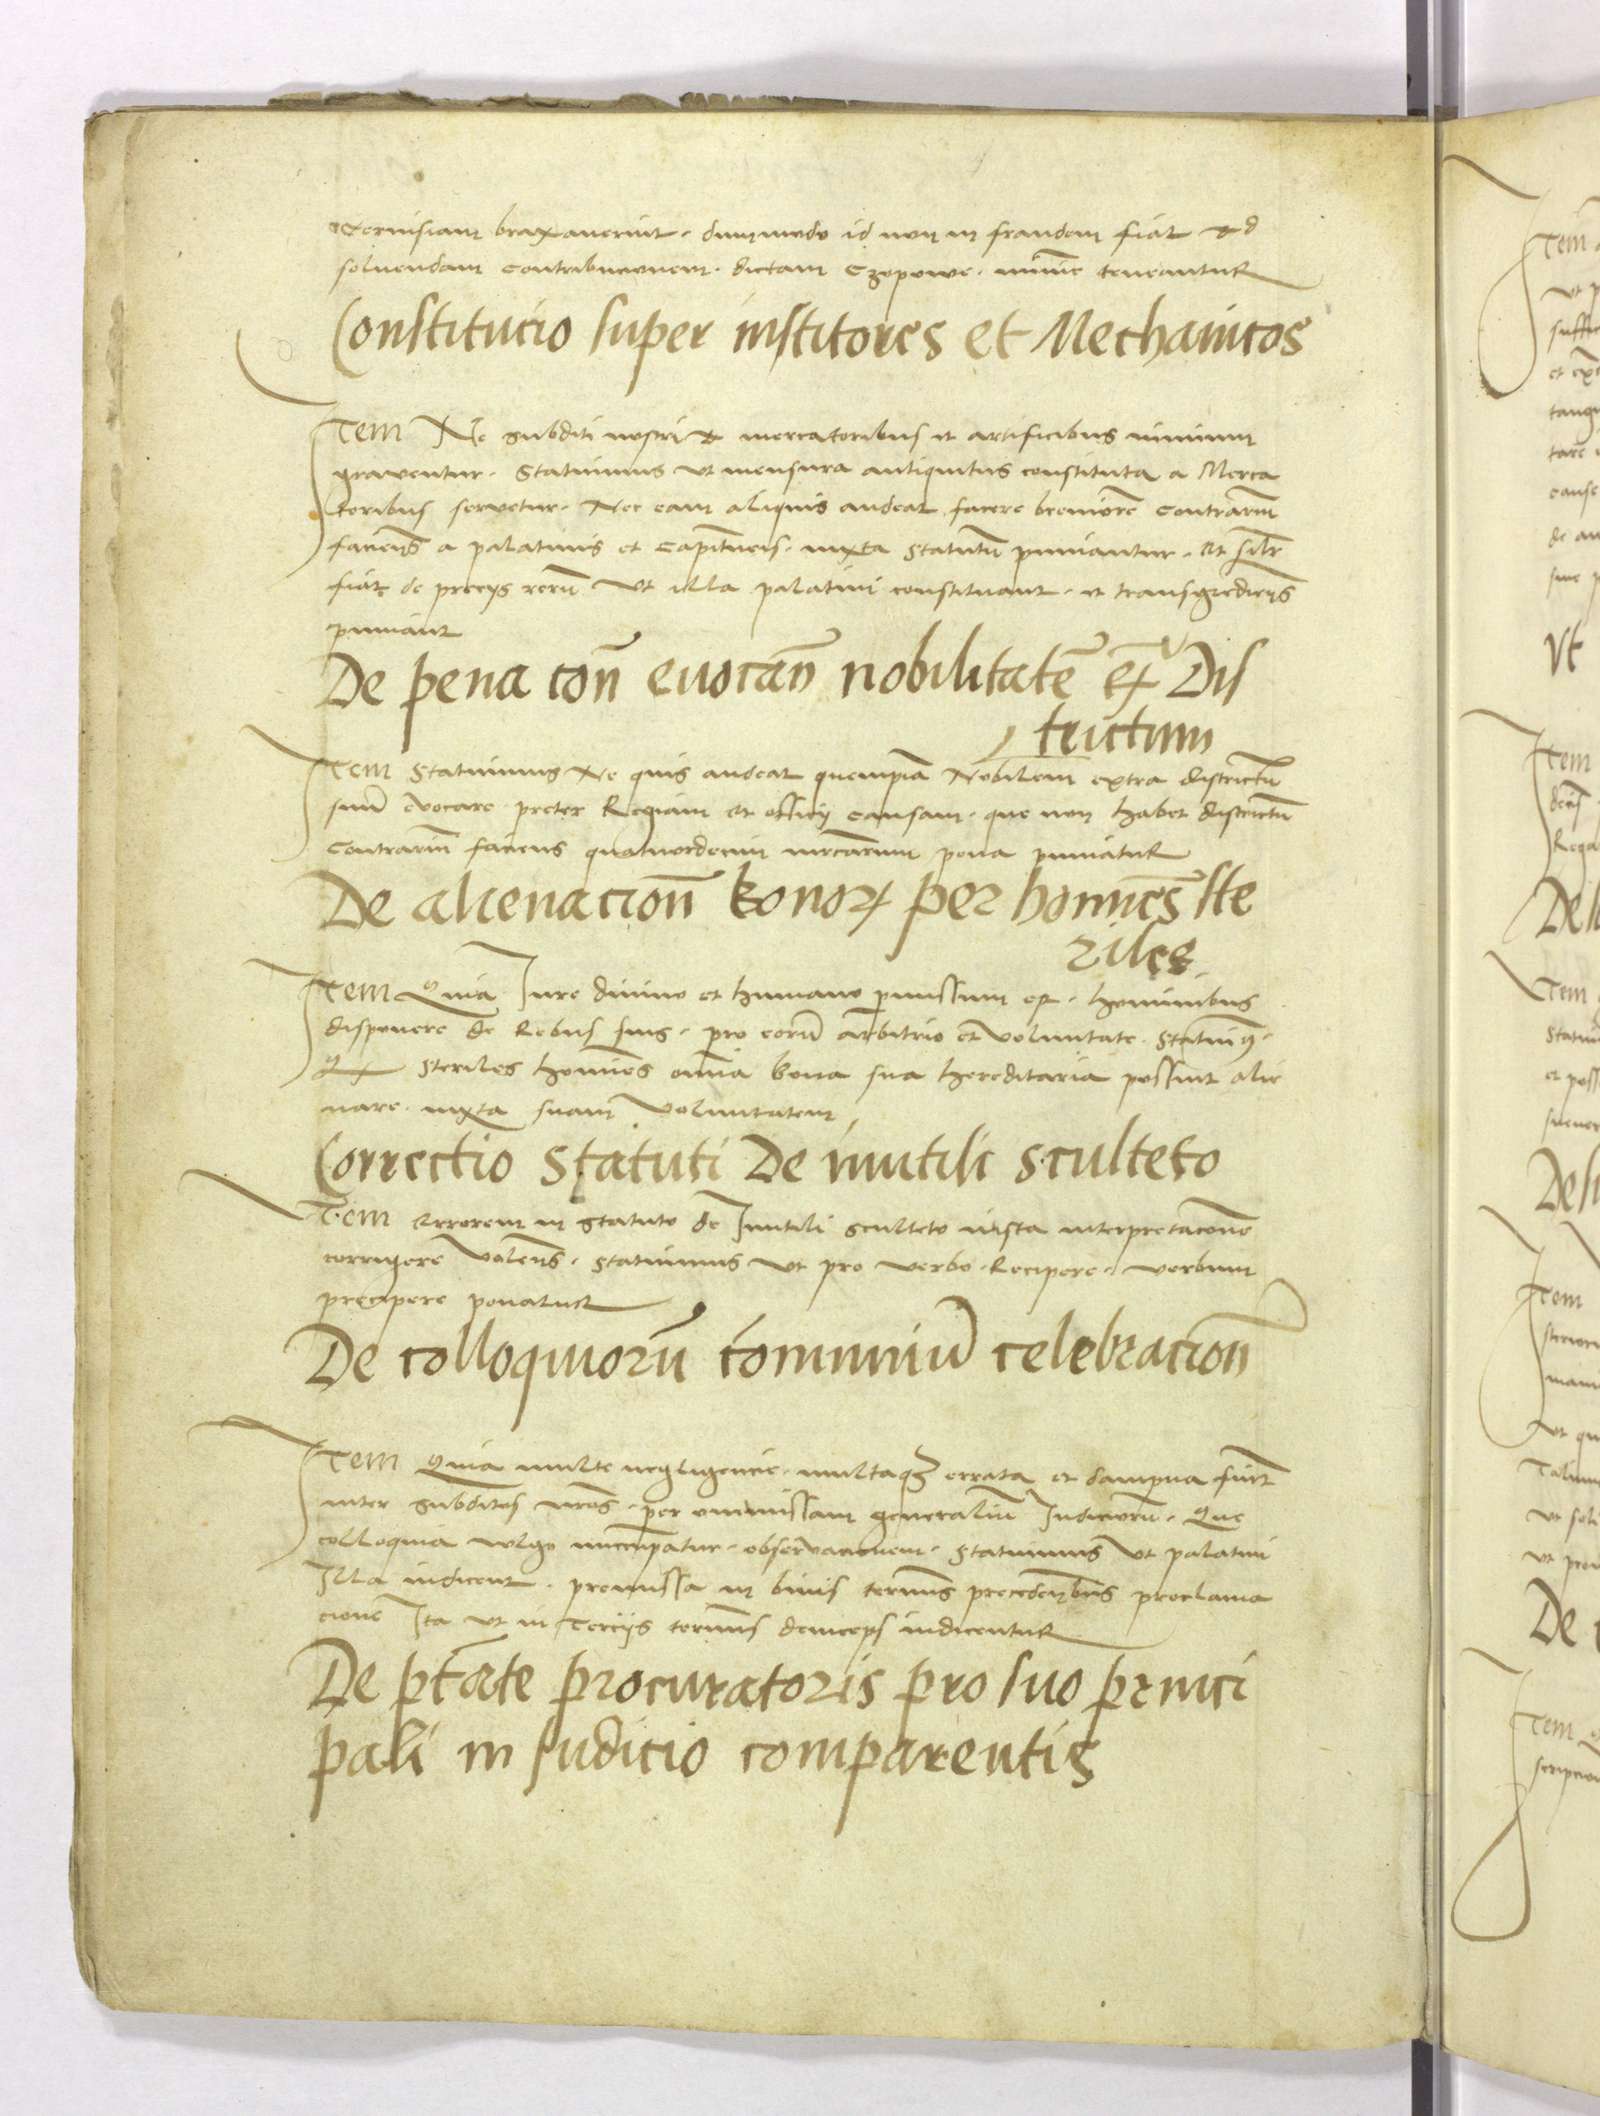 cervisiam braxaverint. dummodo id non in fraudem fiat ad
solvendam contribucionem. dictam Czopowe. minie teneantur
Constitucio super institores et Mechanicos
Item Ne subditi nostri a mercatoribus et artificibus nimium
graventur. Statuimus ut mensura antiquitus constituta a Merca
toribus servetur. Nec eam aliquis audeat facere breviorē contrariū
faciens a palatinis et Capitneis. iuxta statutū puniantur. et silr
fiat de preciis rerū Ut illa palatini constituant. et transgrediens
puniant
De pena con̄ evocan̄ nobilitatē ex Dis
trictum
Item Statuimus Ne quis audeat quempiā Nobilem extra districtū
suū evocare preter Regiam et officij causam. que non habet districtū
Contrariū faciens quatuordecim mrcarum pena puniatur
De alienacion̄ bonor per homines ste
riles
Item Quia Iure divino et humano permissum est. hominibus
disponere de Rebus suis. pro eorū arbitrio et voluntate. Statuim9.
Steriles homines omnia bona sua hereditaria possint alie
nare. iuxta suam voluntatem
Correctio Statuti De inutili sculteto
Item Errorem in statuto de Inutili sculteto iusta interpretacione
corrigere volens. Statuimus ut pro verbo. Recipere. verbum
precipere ponatur
De colloquiorū communiū celebracion̄
Item Quia multe negligencie. multaq errata et dampna fiūt
inter subditos nr̄os. per ommissam generaliū Iudiciorū. Que
colloquia wlgo nuccupatur. observacionem. Statuimus ut palatini
Illa indicent. premissa in binis terminis precedentibus proclama
cione Ita ut in terciis terminis deinceps indicentur
De ptāte procuratoris pro suo princi
pali in Iudicio comparentis